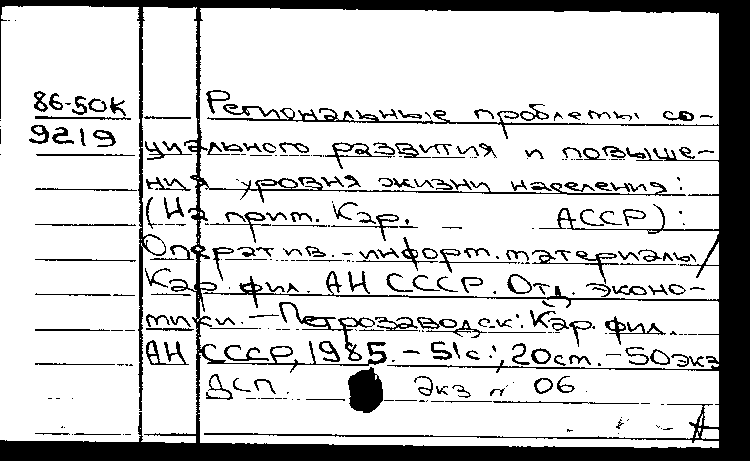 86-50К
9219
Региональные проблемы со-
циального развития и повыше-
ния уровня жизни населения:
(На прим. Кар. АССР):
Оператив.-информ. материалы/
Кар. фил. АН СССР. Отд. эконо-
мики.-Петрозаводск: Кар. фил.
АН СССР, 1985.-51с.; 20см.-50экз
ДСП. Экз № 06